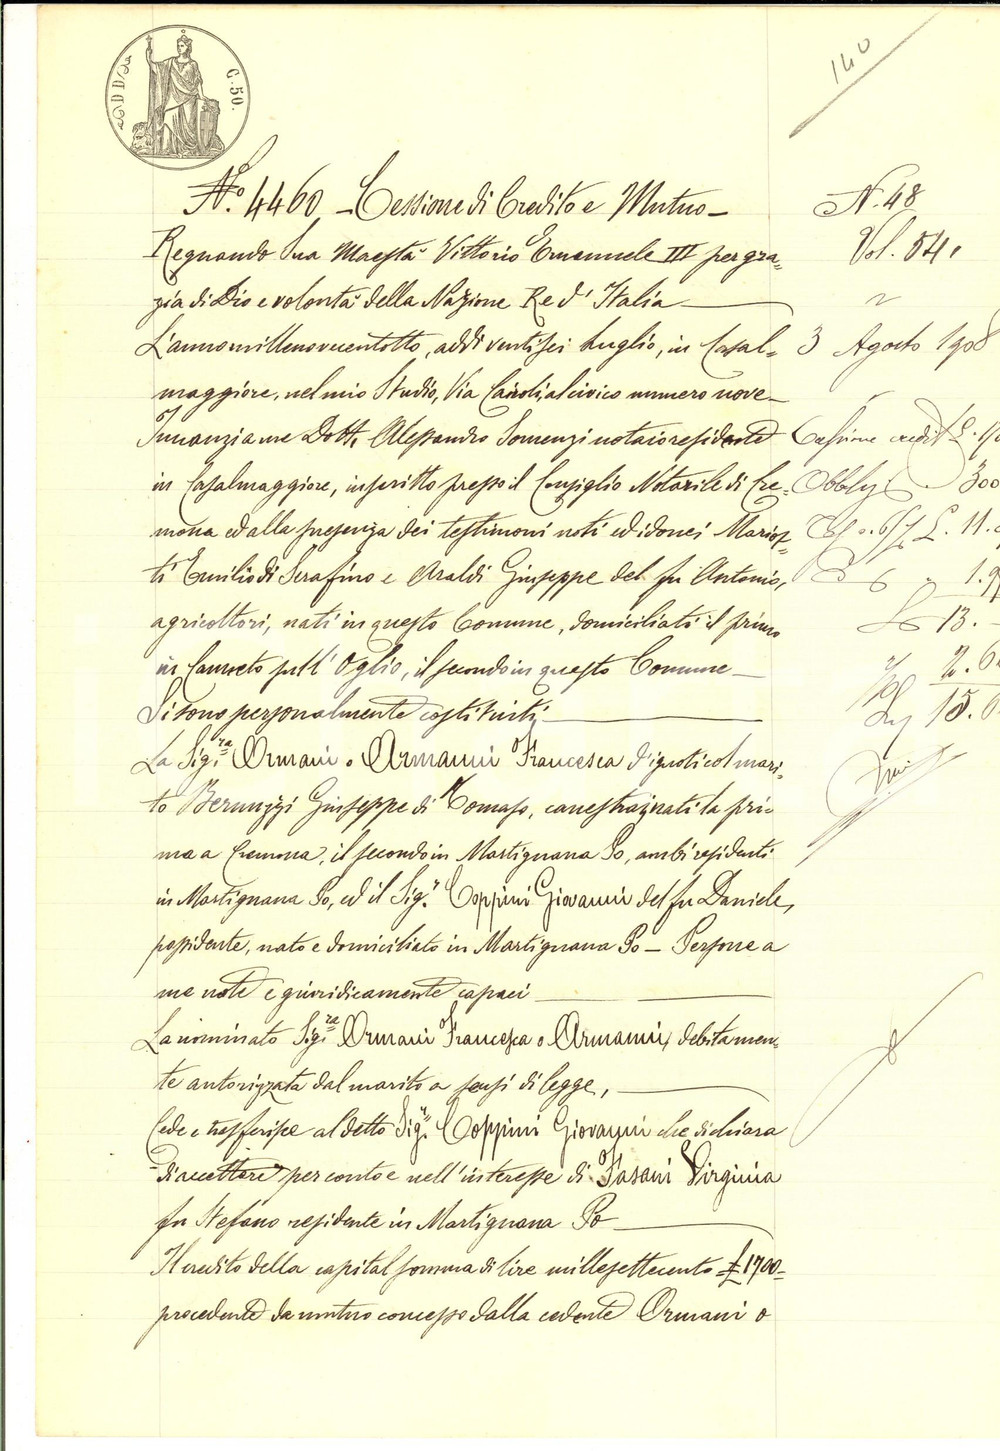 C. 50.
140
N.° 4460 - Cessione di Credito e Mutuo -
Regnando Sua Maestà Vittorio Emanuele III per gra-
zia di Dio e volontà della Nazione Re d'Italia
L'anno millenovecentotto, addì ventisei luglio, in Casal-
maggiore, nel mio Studio, Via Cairoli, al civico numero nove -
Innanzi a me Dott. Alessandro Somenzi notaio residente
in Casalmaggiore, inscritto presso il Consiglio Notarile di Cre-
mona ed alla presenza dei testimoni noti ed idonei Mariot-
ti Emilio di Serafino e Araldi Giuseppe del fu Antonio,
agricoltori, nati in questo Comune, domiciliati il primo
in Canneto sull'Oglio, il secondo in questo Comune -
Si sono personalmente costituiti
La Sig.ra Ormani o Armanni Francesca d'ignoti col mari-
to Bernuzzi Giuseppe di Tomaso, nati la pri-
ma a Cremona, il secondo in Martignana Po, ambi residenti
in Martignana Po, ed il Sig.r Coppini Giovanni del fu Daniele,
possidente, nato e domiciliato in Martignana Po - Persone a
me note e giuridicamente capaci
La nominata Sig.ra Ormani Francesca o Armanni, debitamen-
te autorizzata dal marito a sensi di legge,
Cede e trasferisce al detto Sig.r Coppini Giovanni che dichiara
di accettare per conto e nell'interesse di Fasani Virginia
fu Stefano residente in Martignana Po
Il credito della capital somma di lire millesettecento £ 1700-
procedente da mutuo concesso dalla cedente Ormani o
N. 48
Vol. 54.
3 Agosto 1908
Cessione credito £.
300
£. 11.
6
13. -
2.
15.